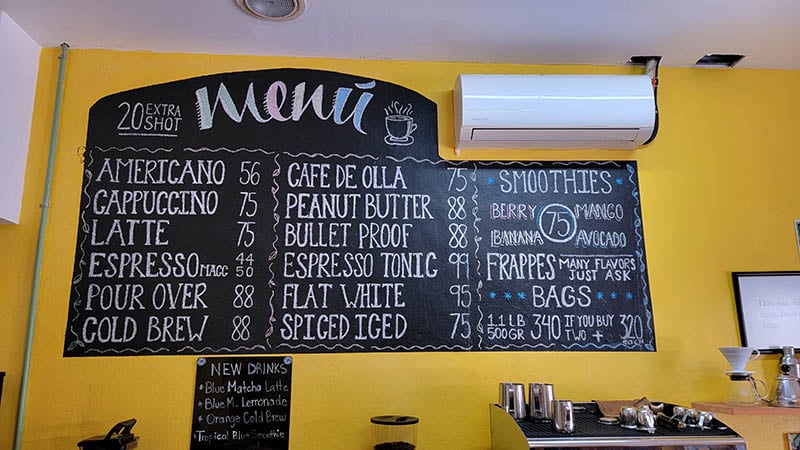 20 EXTRA SHOT
menú
AMERICANO 56
CAPPUCCINO 75
LATTE 75
ESPRESSO MACC 44 50
POUR OVER 88
COLD BREW 88
CAFE DE OLLA 75
PEANUT BUTTER 88
BULLET PROOF 88
ESPRESSO TONIC 99
FLAT WHITE 95
SPICED ICED 75
*SMOOTHIES*
BERRY 75 MANGO
BANANA AVOCADO
FRAPPES MANY FLAVORS JUST ASK
** BAGS ***
1.1 LB 500GR 340 IF YOU BUY TWO + 320 each
NEW DRINKS
*Blue Matcha Latte
*Blue M. Lemonade
*Orange Cold Brew
*Tropical Blue Smoothie